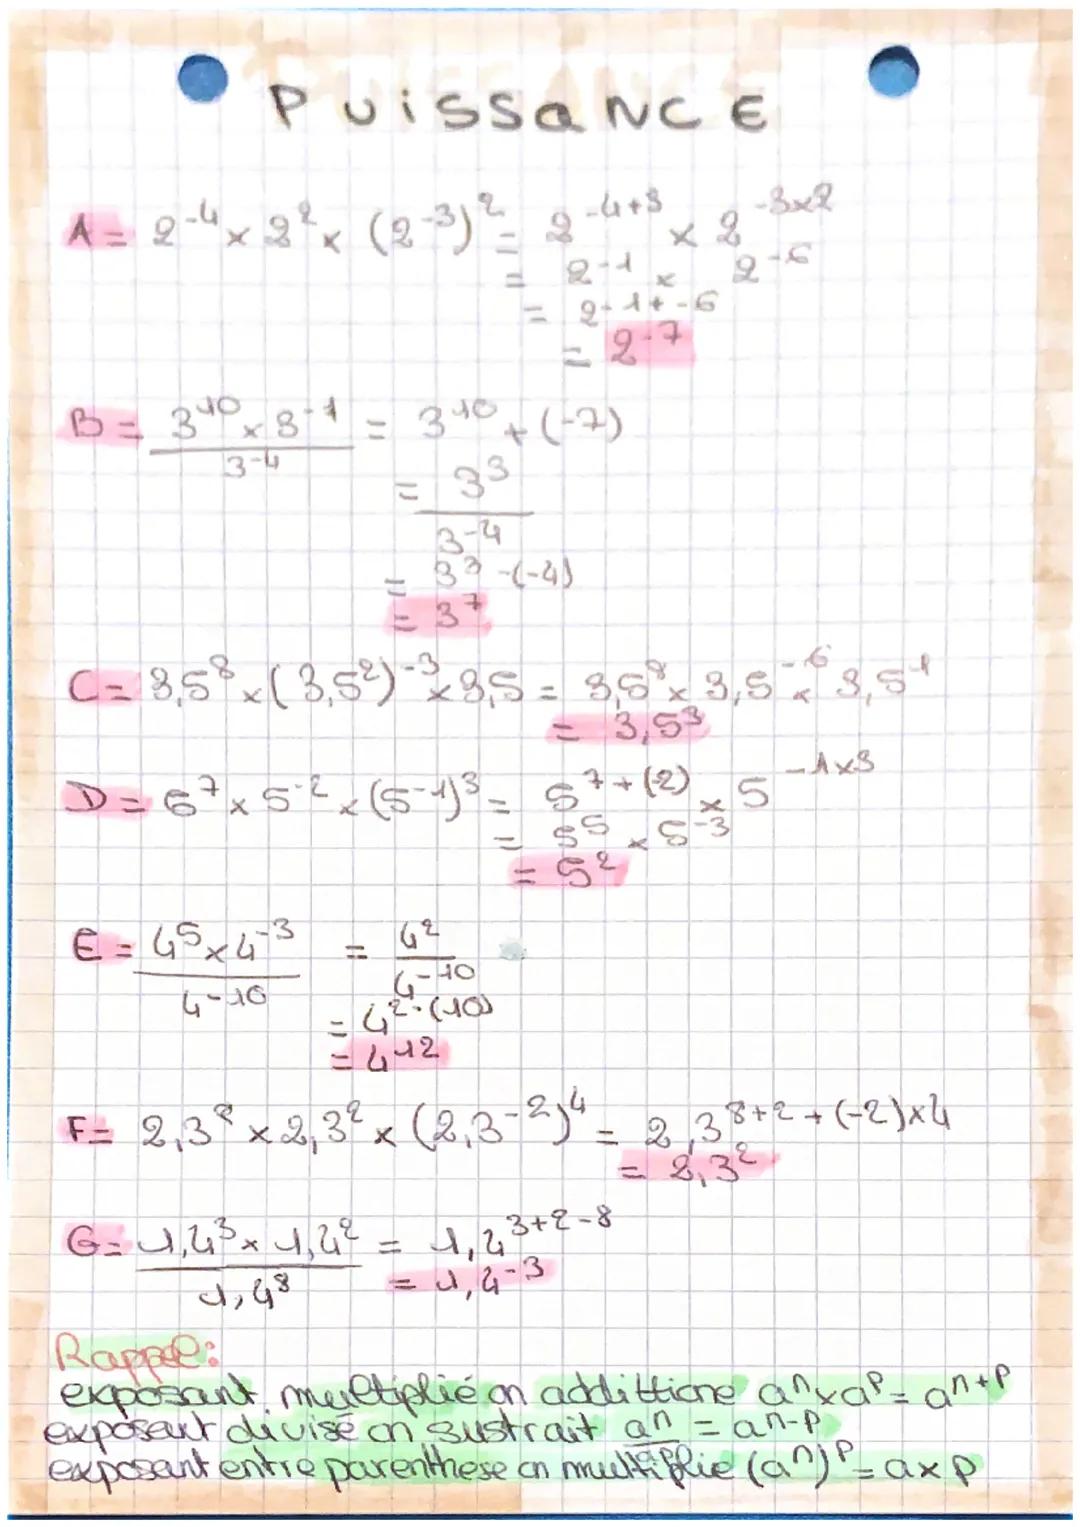 PUiSSaNCE
A = 2^-4 × 2^2 × (2^-3)^2 = 2^-4+3 × 2^-3×2
= 2^-1 × 2^-6
= 2^-1+-6
= 2^-7
B = (3^10 × 3^-1)/(3^-4) = 3^10 + (-7)
= 3^3/3^-4
= 3^3 -(-4)
= 3^7
C = 3,5^8 × (3,5^2)^-3 × 3,5 = 3,5^8 × 3,5^-6 × 3,5^1
= 3,5^3
D = 5^7 × 5^-2 × (5^-1)^3 = 5^7+(-2) × 5^-1×3
= 5^5 × 5^-3
= 5^2
E = (4^5 × 4^-3)/(4^-10) = 4^2/4^-10
= 4^2-(-10)
= 4^12
F = 2,3^8 × 2,3^2 × (2,3^-2)^4 = 2,3^8+2+(-2)×4
= 2,3^2
G = (1,4^3 × 1,4^2)/(1,4^8) = 1,4^3+2-8
= 1,4^-3
Rappel:
exposant multiplié on addittione a^n × a^p = a^n+p
exposant divisé on sustrait a^n/a^p = a^n-p
exposant entre parenthese on multiplie (a^n)^p = a×p